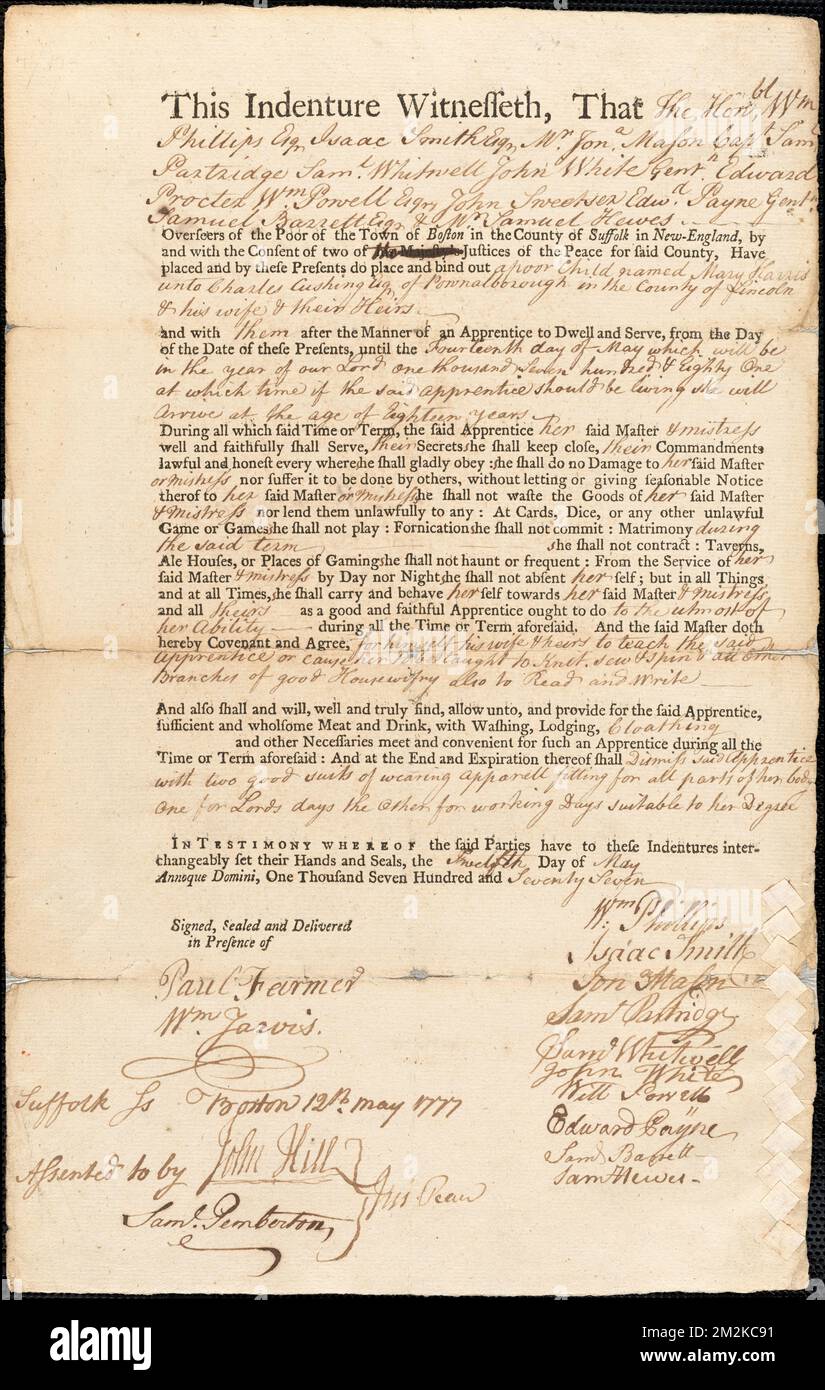 This Indenture Witnesseth, That The Honbl Wm
Phillips Esqr Isaac Smith Esqr Mr Jona Mason Capt Saml
Partridge Saml Whitwell John White Gentn Edward
Procter Wm Powell Esqr John Sweetser Edwd Payne Gentn
Samuel Barrett Esqr & Mr Samuel Hewes
Overseers of the Poor of the Town of Boston in the County of Suffolk in New-England, by
and with the Consent of two of Justices of the Peace for said County, Have
placed and by these Presents do place and bind out a poor Child named Mary Harris
unto Charles Cushing Esqr of Pownalborough in the County of Lincoln
& his wife & their Heirs
and with them after the Manner of an Apprentice to Dwell and Serve, from the Day
of the Date of these Presents, until the Fourteenth day of May which will be
in the year of our Lord one thousand Seven hundred & Eighty One
at which time if the said apprentice should be living she will
Arrive at the age of Eighteen years
During all which said Time or Term, the said Apprentice her said Master & mistress
well and faithfully shall Serve, their Secrets she shall keep close, their Commandments
lawful and honest every where she shall gladly obey : she shall do no Damage to her said Master
or Mistress nor suffer it to be done by others, without letting or giving seasonable Notice
therof to her said Master or Mistress she shall not waste the Goods of her said Master
& Mistress nor lend them unlawfully to any : At Cards, Dice, or any other unlawful
Game or Games she shall not play : Fornication she shall not commit : Matrimony during
the said term she shall not contract : Taverns,
Ale Houses, or Places of Gaming she shall not haunt or frequent : From the Service of her
said Master & mistress by Day nor Night she shall not absent her self; but in all Things
and at all Times, she shall carry and behave her self towards her said Master & Mistress
and all theirs as a good and faithful Apprentice ought to do to the utmost of
her Ability during all the Time or Term aforesaid. And the said Master doth
hereby Covenant and Agree, for himself his wife & heirs to teach the said
Apprentice or cause her to be taught to Knit, sew & spin & all other
Branches of good Housewifry also to Read and Write
And also shall and will, well and truly find, allow unto, and provide for the said Apprentice,
sufficient and wholsome Meat and Drink, with Washing, Lodging, Cloathing
and other Necessaries meet and convenient for such an Apprentice during all the
Time or Term aforesaid : And at the End and Expiration thereof shall Dismiss said Apprentice
with two good suits of wearing apparell fitting for all parts of her body
one for Lords days the other for working Days suitable to her Degree
In Testimony whereof the said Parties have to these Indentures inter-
changeably set their Hands and Seals, the Twelfth Day of May
Annoque Domini, One Thousand Seven Hundred and Seventy Seven
Signed, Sealed and Delivered
in Presence of
Paul Farmer
Wm Jarvis.
Wm Phillips
Isaac Smith
Jon Mason
Saml Partridge
Saml Whitwell
John White
Will Powell
Edward Payne
Saml Barrett
Saml Hewes
Suffolk Ss Boston 12th May 1777
Assented to by John Hill
Jus Peace
Saml Pemberton
alamy
Image ID: 2M2KC91
www.alamy.com